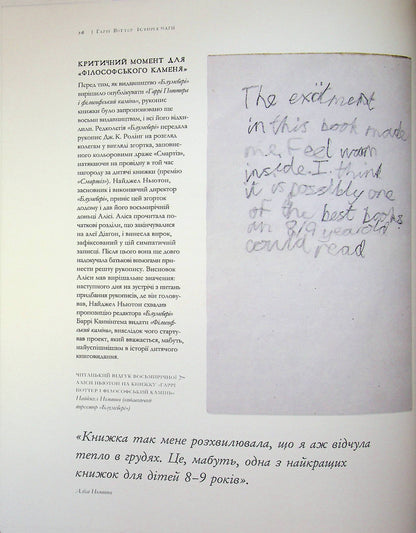 16 | Гаррі Поттер: Історія магії
КРИТИЧНИЙ МОМЕНТ ДЛЯ
«ФІЛОСОФСЬКОГО КАМЕНЯ»
Перед тим, як видавництво «Блумзбері»
вирішило опублікувати «Гаррі Поттера
і філософський камінь», рукопис
книжки було запропоновано ще
восьми видавництвам, і всі його відхи-
лили. Редколегія «Блумзбері» передала
рукопис Дж. К. Ролінґ на розгляд
колегам у вигляді згортка, запов-
неного кольоровими драже «Смартіз»,
натякаючи на провідну в той час
нагороду за дитячі книжки (премію
«Смартіз»). Найджел Ньютон,
засновник і виконавчий директор
«Блумзбері», приніс цей згорток
додому і дав його восьмирічній
доньці Алісі. Аліса прочитала
початкові розділи, що закінчувалися
на алеї Діаґон, і винесла вирок,
зафіксований у цій симпатичній
записці. Після цього вона ще довго
надокучала батькові вимогами при-
нести решту рукопису. Висновок
Аліси мав вирішальне значення:
наступного дня на зустрічі з питань
придбання рукописів, де він голову-
вав, Найджел Ньютон схвалив
пропозицію редактора «Блумзбері»
Баррі Каннінґема видати «Філософ-
ський камінь», внаслідок чого старту-
вав проект, який вважається, мабуть,
найуспішнішим в історії дитячого
книговидання.
ЧИТАЦЬКИЙ ВІДГУК ВОСЬМИРІЧНОЇ
АЛІСИ НЬЮТОН НА КНИЖКУ «ГАРРІ
ПОТТЕР І ФІЛОСОФСЬКИЙ КАМІНЬ»
Найджел Ньютон (виконавчий
директор «Блумзбері»)
The exitment
in this book made
me feel warm
inside. I think
it is possibly one
of the best books
an 8/9 year old
could read
«Книжка так мене розхвилювала, що я аж відчула
тепло в грудях. Це, мабуть, одна з найкращих
книжок для дітей 8–9 років».
Аліса Ньютон